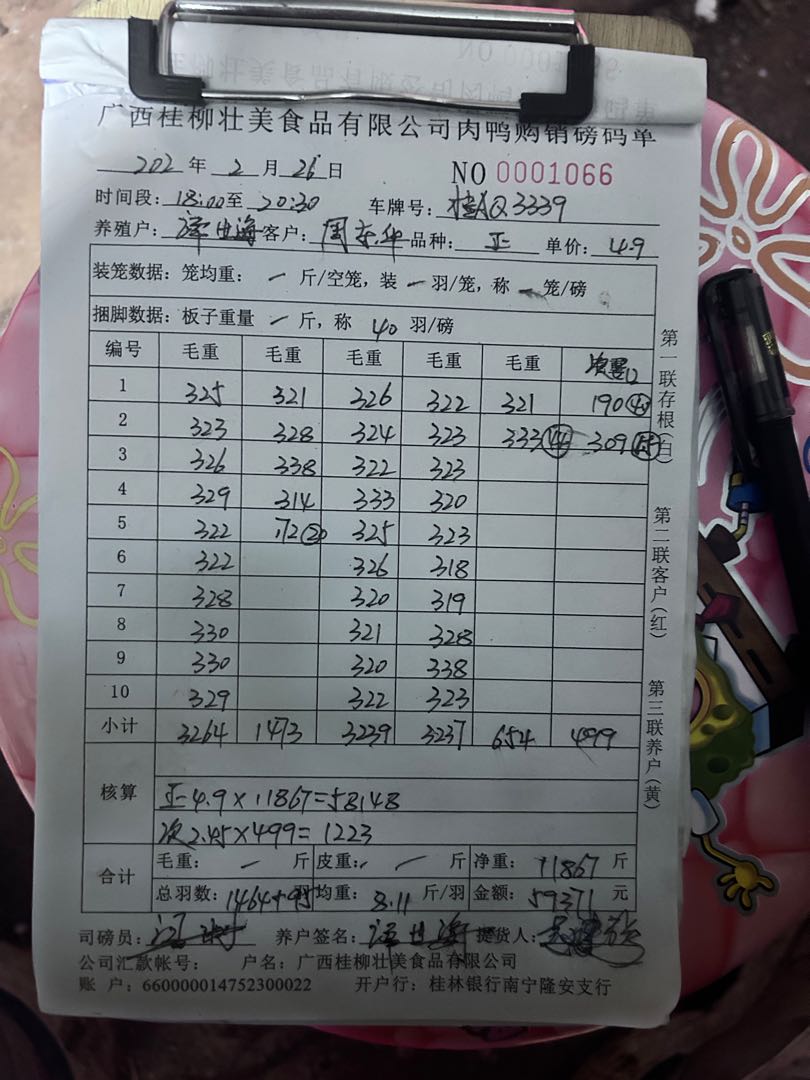 广西桂柳壮美食品有限公司肉鸭购销磅码单
202 年 2 月 26 日 NO 0001066
时间段: 18:00 至 20:30 车牌号: 桂AQ3339
养殖户: 海 客户: 周 华 品种: 正 单价: 4.9
装笼数据: 笼均重: 一 斤/空笼, 装 一 羽/笼, 称 一 笼/磅
捆脚数据: 板子重量 一 斤, 称 40 羽/磅
编号 毛重 毛重 毛重 毛重 毛重 次
1 325 321 326 322 321 190
2 323 328 324 323 333 (44) 309
3 326 338 322 323
4 329 314 333 320
5 322 172 (20) 325 323
6 322 326 318
7 328 320 319
8 330 321 328
9 330 320 338
10 329 322 323
小计 3264 1473 3239 3237 654 499
核算
正 4.9×11867=58148
次 2.45×499=1223
合计 毛重: 一 斤 皮重: 一 斤 净重: 11867 斤
总羽数: 1464+95 羽 均重: 8.11 斤/羽 金额: 59371 元
司磅员: 养户签名: 海 提货人:
公司汇款帐号: 户名: 广西桂柳壮美食品有限公司
账 户: 660000014752300022 开户行: 桂林银行南宁隆安支行
第一联存根(白)
第二联客户(红)
第三联养户(黄)